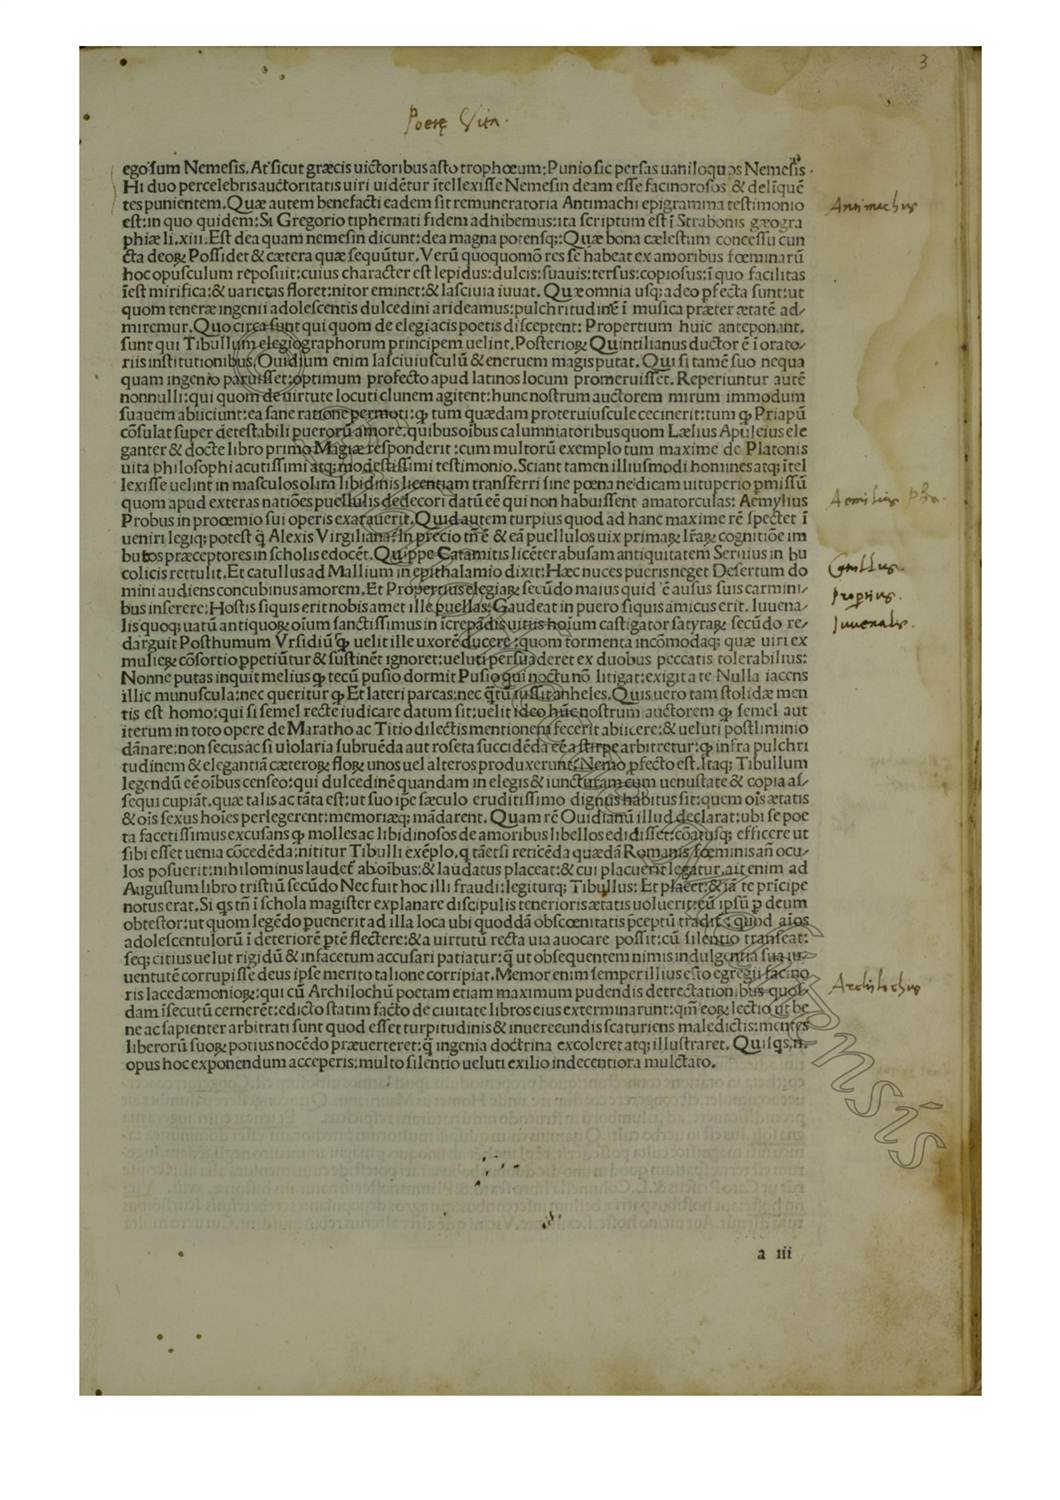 3
Poetę Vita.
ego sum Nemesis. At sicut græcis uictoribus asto trophœum: Punio sic persas uaniloquos Nemesis.
Hi duo percelebris auctoritatis uiri uidētur ītellexisse Nemesin deam esse facinorosos & delīquē
tes punientem. Quæ autem benefacti eadem sit remuneratoria Antimachi epigramma testimonio
Antimachus
est: in quo quidem: Si Gregorio tiphernati fidem adhibemus: ita scriptum est ī Strabonis gæogra
phiæ li. xiii. Est dea quam nemesin dicunt: dea magna potensq;: Quæ bona cælestum concessu cun
cta deoꝝ Possidet & cætera quæ sequūtur. Verū quoquomō res se habeat ex amoribus fœminarū
hoc opusculum reposuit: cuius character est lepidus: dulcis: suauis: tersus: copiosus: ī quo facilitas
īest mirifica: & uarietas floret: nitor eminet: & lasciuia iuuat. Quæ omnia usq; adeo pfecta sunt: ut
quom teneræ ingenii adolescentis dulcedini arideamus: pulchritudinē ī musica præter ætatē ad/
miremur. Quocirca sunt qui quom de elegiacis poetis disceptent: Propertium huic anteponant.
sunt qui Tibullum elegiographorum principem uelint. Posterioꝝ Quintilianus ductor ē ī orato/
riis institutionibus. Ouidium enim lasciuiusculū & eneruem magis putat. Qui si tamē suo nequa
quam ingenio paruisset: optimum profecto apud latinos locum promeruisset. Reperiuntur autē
nonnulli: qui quom de uirtute locuti clunem agitent: hunc nostrum auctorem mirum immodum
suauem abiiciunt: ea sane ratione permoti: ꝙ tum quædam proteruiuscule cecinerit: tum ꝙ Priapū
cōsulat super detestabili puerorū amore. quibus oībus calumniatoribus quom Lælius Apuleius ele
ganter & docte libro primo Magiæ responderit: cum multorū exemplo tum maxime de Platonis
uita philosophi acutissimi atq; modestissimi testimonio. Sciant tamen illiusmodi homines atq; ītel
lexisse uelint in masculos olim libidinis licentiam transferri sine pœna ne dicam uituperio pmissū
quom apud exteras natiōes puellulis dedecori datū eē qui non habuissent amatorculas: Aemylius
Aemilius Pbo.
Probus in proœmio sui operis exarauerit. Quid autem turpius quod ad hanc maxime rē spectet ī
ueniri legiq; potest q̄ Alexis Virgiliana? In precio tn̄ ē & eā puellulos uix primaꝝ lr̄aꝝ cognitiōe im
butos præceptores in scholis edocēt. Quippe Catamitis licēter abusam antiquitatem Seruius in bu
colicis rettulit. Et catullus ad Mallium in epithalamio dixit: Hæc nuces pueris neget Desertum do
Catullus.
mini audiens concubinus amorem. Et Propertius elegiaꝝ secūdo maius quid ē ausus suis carmini/
propertius.
bus inserere: Hostis siquis erit nobis amet ille puellas: Gaudeat in puero siquis amicus erit. Iuuena/
Iuuenalis.
lis quoq; uatū antiquoꝝ oīum sanctissimus in icrepādis uitiis hoīum castigator satyraꝝ secūdo re/
darguit Posthumum Vrsidiū ꝙ uelit ille uxorē ducere: quom tormenta incōmodaq; quæ uiri ex
mulieꝝ cōsortio ppetiūtur & sustinēt ignoret: ueluti persuaderet ex duobus peccatis tolerabilius:
Nonne putas inquit melius ꝙ tecū pusio dormit Pusio qui noctu nō litigat: exigit a te Nulla iacens
illic munuscula: nec queritur ꝙ Et lateri parcas: nec q̄tū iussit anheles. Quis uero tam stolidæ men
tis est homo: qui si semel recte iudicare datum sit: uelit ideo hūc nostrum auctorem ꝙ semel aut
iterum in toto opere de Maratho ac Titio dilectis mentionem fecerit abiicere: & ueluti postliminio
dānare: non secus ac si uiolaria subruēda aut roseta succidēda eē a stirpe arbitretur: ꝙ infra pulchri
tudinem & elegantiā cæteroꝝ floꝝ unos uel alteros produxerunt: Nemo pfecto est. Itaq; Tibullum
legendū eē oībus censeo: qui dulcedinē quandam in elegis & iuncturam cum uenustate & copia as/
sequi cupiāt. quæ talis ac tāta est: ut suo ipe sæculo eruditissimo dignus habitus sit: quem oīs ætatis
& oīs sexus hoīes perlegerent: memoriæq; mādarent. Quam rē Ouidianū illud declarat: ubi se poe
ta facetissimus excusans ꝙ molles ac libidinosos de amoribus libellos edidisset: cōatusq; efficere ut
sibi esset uenia cōcedēda: nititur Tibulli exēplo. q tāetsi reticēda quædā Romanis fœminis an̄ ocu/
los posuerit: nihilominus laudet abōibus: & laudatus placeat: & cui placuerit legatur. ait enim ad
Augustum libro tristiū secūdo Nec fuit hoc illi fraudi: legiturq; Tibullus: Et placet: & iā te prīcipe
notus erat. Si qs tn̄ ī schola magister explanare discipulis tenerioris ætatis uoluerit: eū ipsū p deum
obtestor: ut quom legēdo puenerit ad illa loca ubi quoddā obscœnitatis pceptū tradit: quod aīos
adolescentulorū ī deteriorē ptē flectere: & a uirtutū recta uia auocare possit: cū silentio transeat:
seq; citius uelut rigidū & infacetum accusari patiatur: q̄ ut obsequentem nimis indulgentia sua iu/
uentutē corrupisse deus ipse merito talione corripiat. Memor enim semper illius esto egregii facino
ris lacedæmonioꝝ: qui cū Archilochū poetam etiam maximum pudendis detrectationibus quos/
Archilochus
dam īsecutū cernerēt: edicto statim facto de ciuitate libros eius exterminarunt: qm̄ eoꝝ lectio ut be
ne ac sapienter arbitrati sunt quod esset turpitudinis & inuerecundis scaturiens maledictis: mentes
liberorū suoꝝ potius nocēdo præuerteret: q̄ ingenia doctrina excoleret atq; illustraret. Quisqs. n.
opus hoc exponendum acceperis: multo silentio ueluti exilio indecentiora mulctato.
a iii